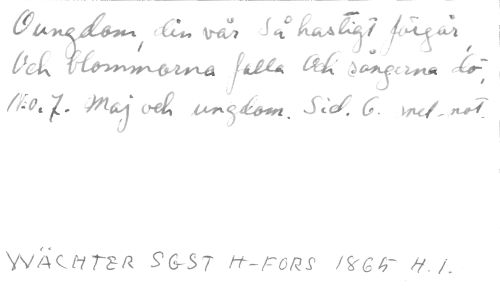 O ungdom, din vår så hastigt förgår,
Och blommorna falla Och sångerna dö,
No. 7. Maj och ungdom. Sid. 6. mel. not.
WÄCHTER SGST H-FORS 1865 H.1.